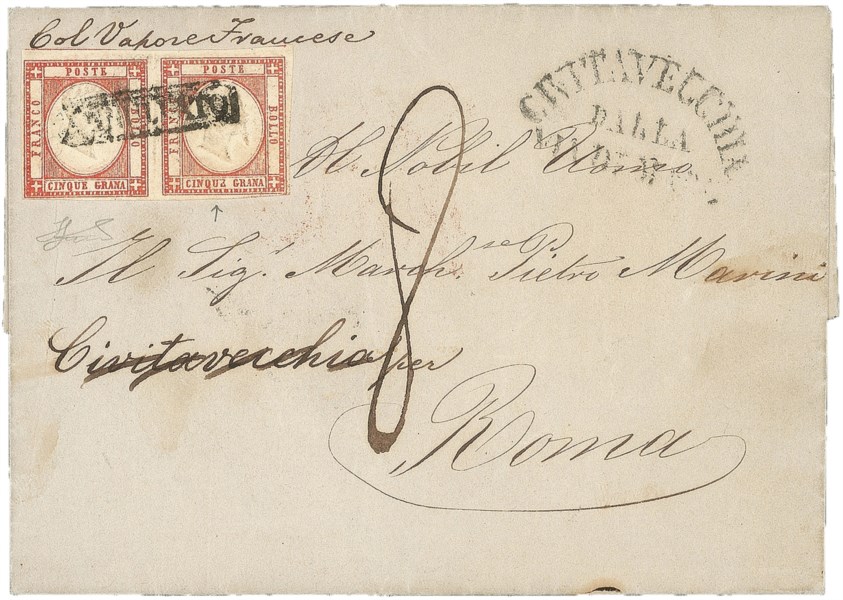 Col Vapore Francese
POSTE
FRANCO
BOLLO
CINQUE GRANA
POSTE
FRANCO
BOLLO
CINQUE GRANA
ANNULLATO
CIVITAVECCHIA
DALLA
8
Il Nobil Uomo
Il Sigʳ March.ˢᵉ Pietro Marini
Civitavecchia per
Roma